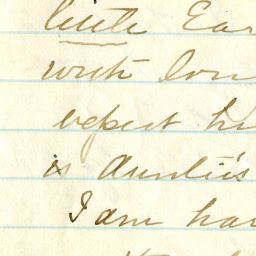 little Ear
with lov
expect h
is Auntie's
I am hav